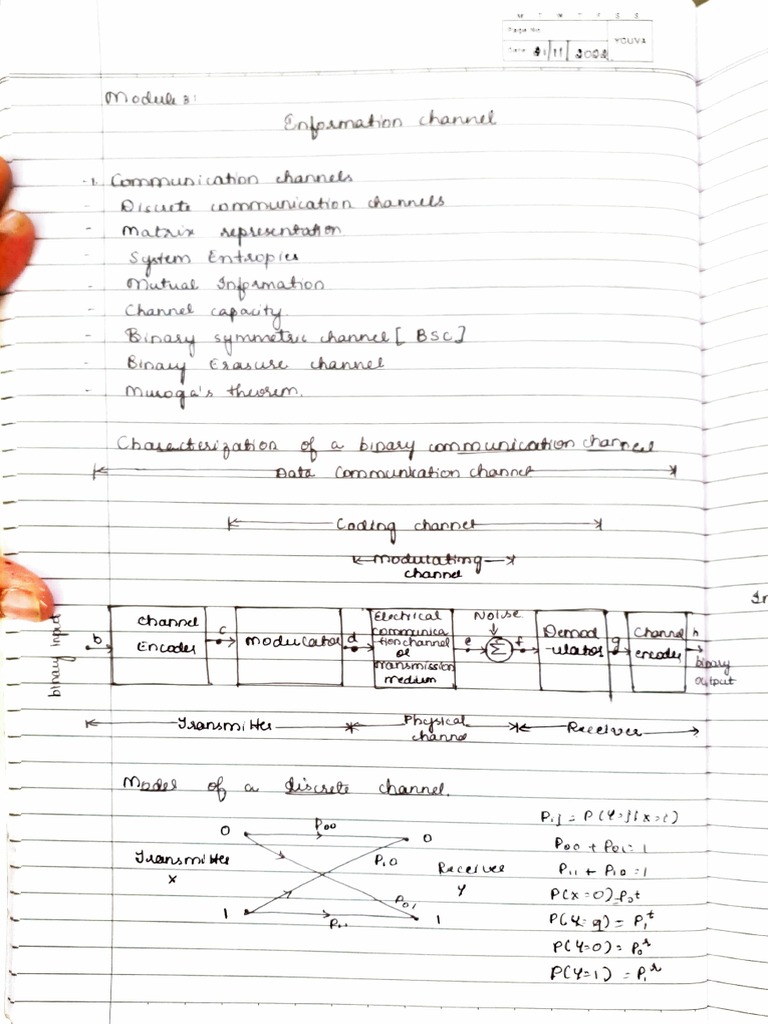 M T W T F S S
Page No.:
Date: 21/11/2022
YOUVA
Module 3:
Information channel
-1. Communication channels
- Discrete communication channels
- Matrix representation
- System Entropies
- Mutual Information
- Channel capacity
- Binary symmetric channel [BSC]
- Binary Erasure channel
- Muroga's theorem.
Characterization of a binary communication channel
Data Communication channel
Coding channel
Modulating
channel
binary input
b
channel
Encoder
c
Modulator
d
Electrical
communica
tion channel
or
transmission
medium
e
Noise
Σ
f
Demod
-ulator
g
Channel
encoder
h
binary
output
Transmitter
Physical
channel
Receiver
Model of a discrete channel.
0 P00 0
Transmitter
X
P10
Receiver
Y
P01
1 P11 1
Pij = P(Y=j|x=i)
P00 + P01 = 1
P11 + P10 = 1
P(x=0)=P0t
P(X=q) = P1t
P(Y=0) = P0r
P(Y=1) = P1r